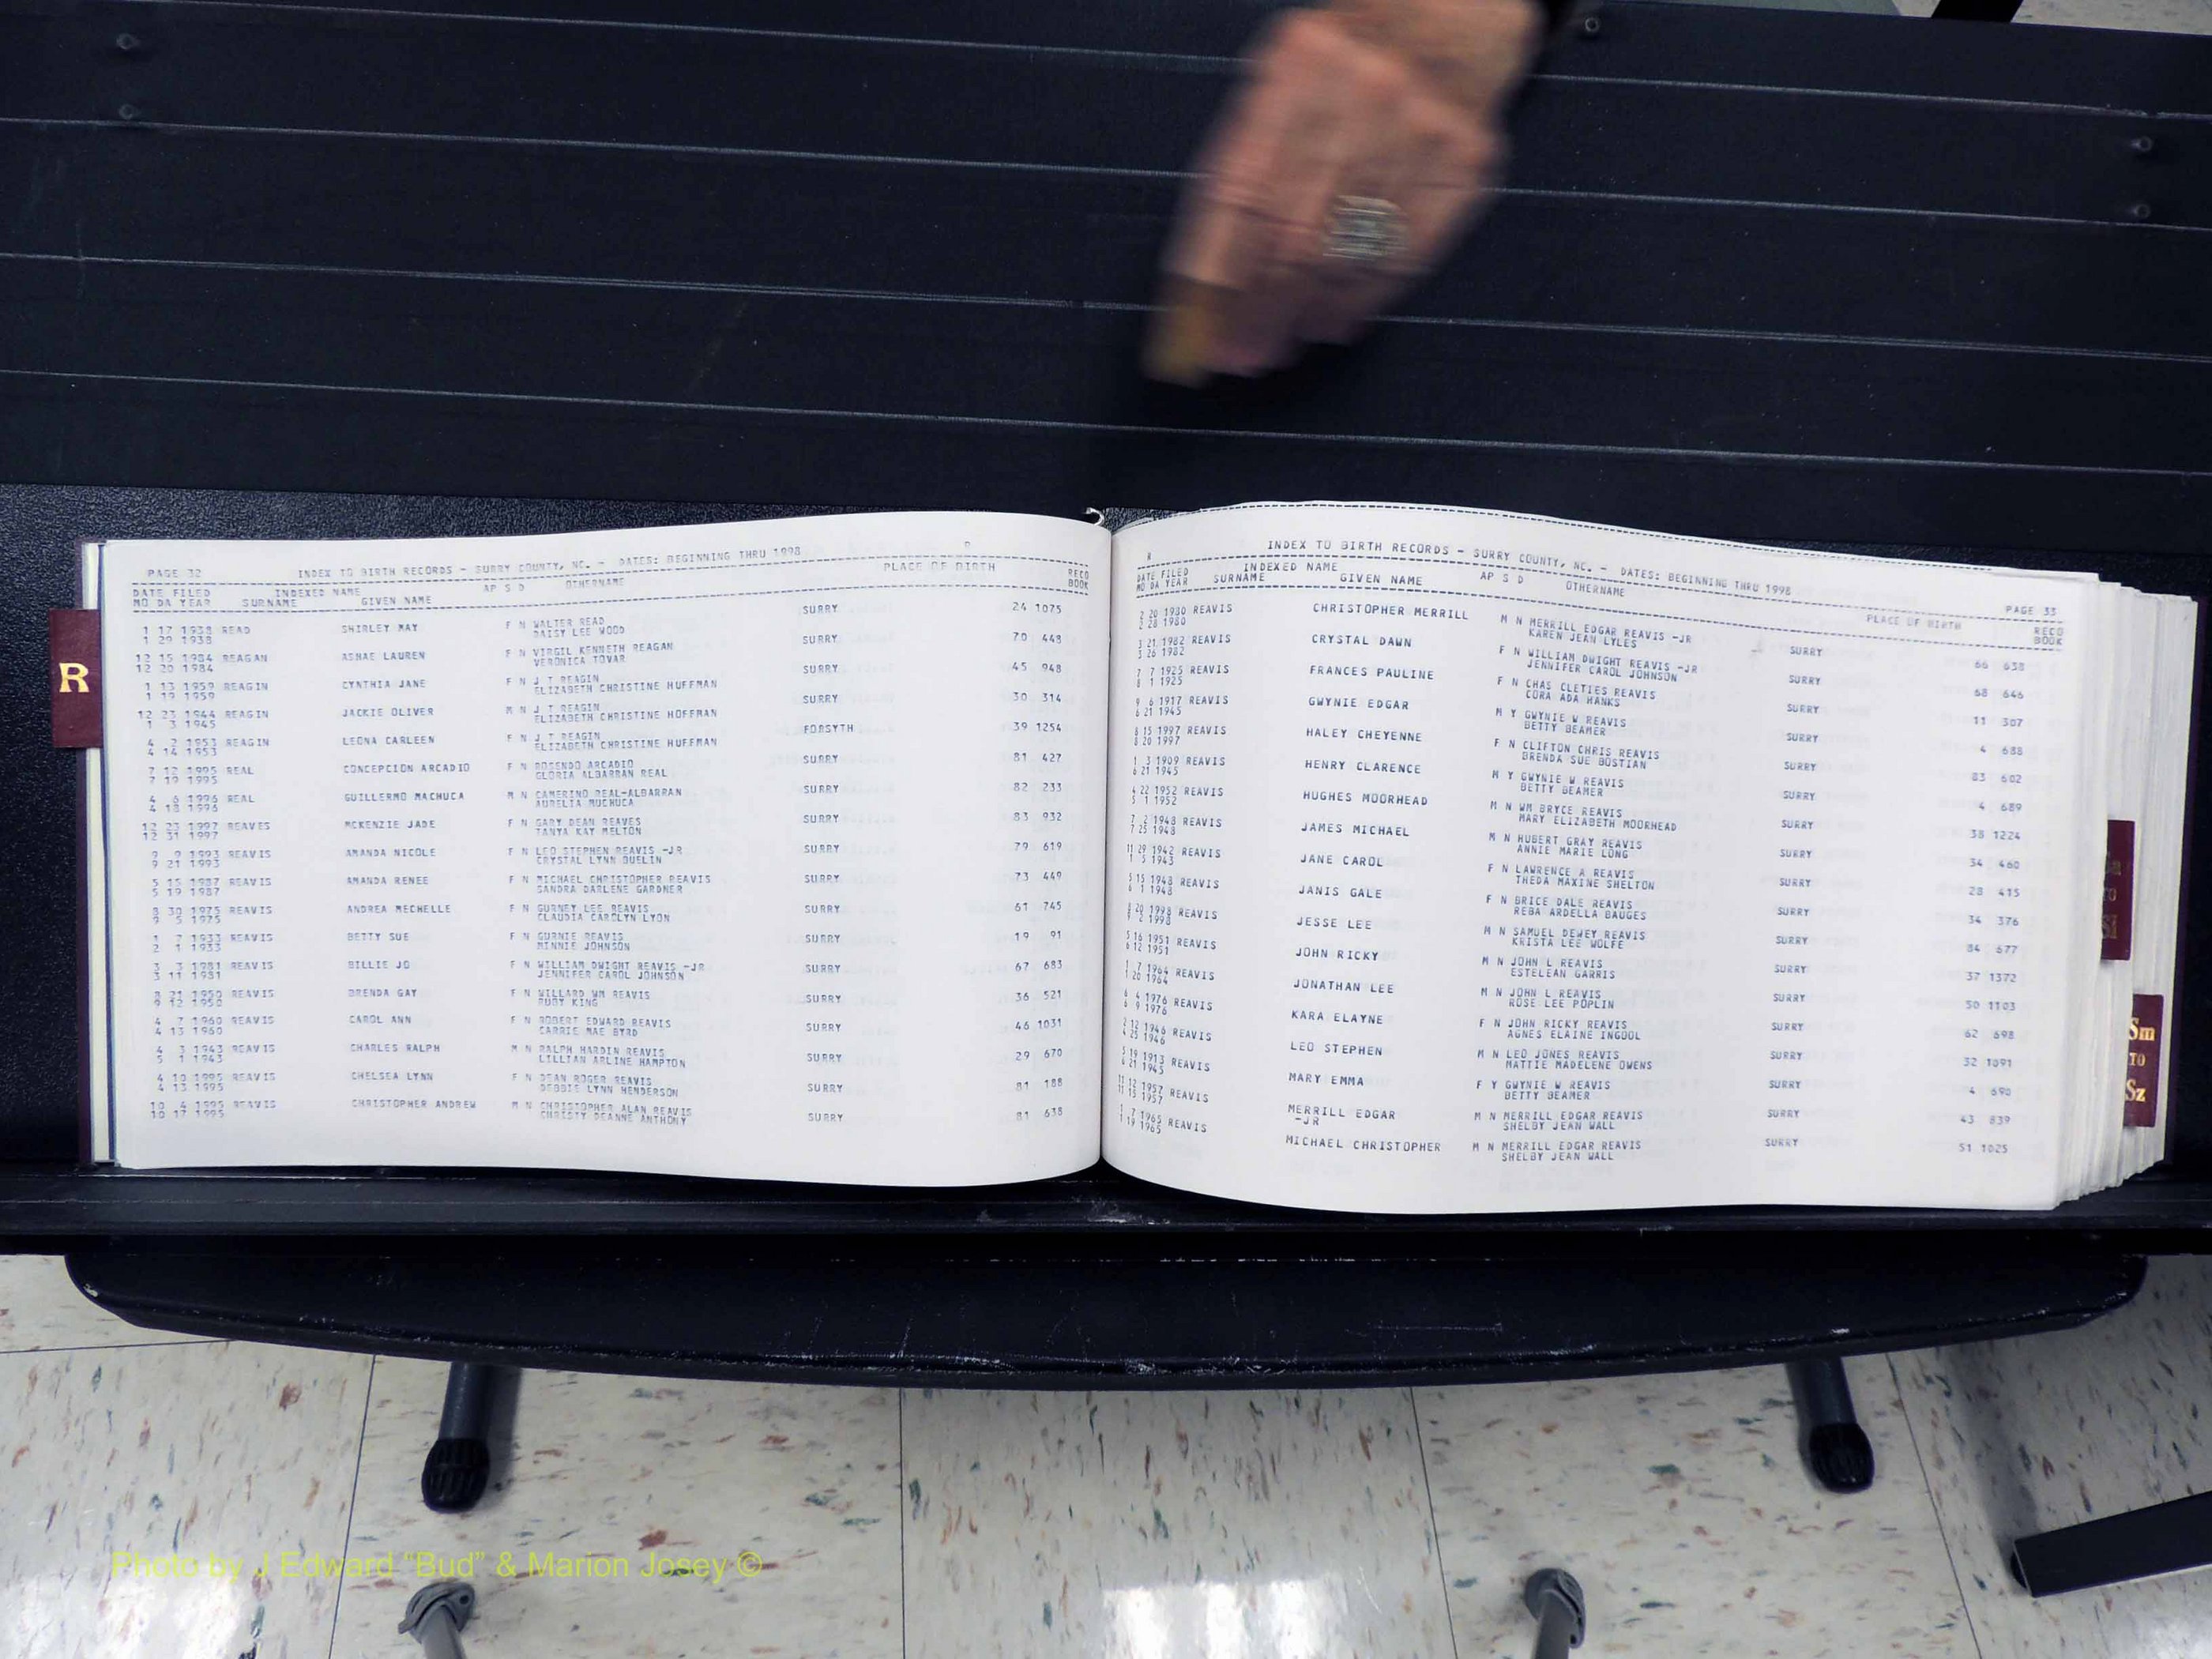 PAGE 32 INDEX TO BIRTH RECORDS - SURRY COUNTY, NC. - DATES: BEGINNING THRU 1998 R
DATE FILED INDEXED NAME AP S D OTHERNAME PLACE OF BIRTH RECO
MO DA YEAR SURNAME GIVEN NAME BOOK
1 17 1938 READ SHIRLEY MAY F N WALTER READ SURRY 24 1075
1 20 1938 DAISY LEE WOOD
12 15 1984 REAGAN ASHAE LAUREN F N VIRGIL KENNETH REAGAN SURRY 70 448
12 20 1984 VERONICA TOVAR
1 13 1959 REAGIN CYNTHIA JANE F N J T REAGIN SURRY 45 948
1 19 1959 ELIZABETH CHRISTINE HUFFMAN
12 23 1944 REAGIN JACKIE OLIVER M N J T REAGIN SURRY 30 314
1 3 1945 ELIZABETH CHRISTINE HOFFMAN
4 2 1953 REAGIN LEONA CARLEEN F N J T REAGIN FORSYTH 39 1254
4 14 1953 ELIZABETH CHRISTINE HUFFMAN
7 12 1995 REAL CONCEPCION ARCADIO F N ROSENDO ARCADIO SURRY 81 427
7 19 1995 GLORIA ALBARRAN REAL
4 6 1996 REAL GUILLERMO MACHUCA M N CAMERINO REAL-ALBARRAN SURRY 82 233
4 18 1996 AURELIA MUCHUCA
12 23 1997 REAVES MCKENZIE JADE F N GARY DEAN REAVES SURRY 83 932
12 31 1997 TANYA KAY MELTON
9 9 1993 REAVIS AMANDA NICOLE F N LEO STEPHEN REAVIS -JR SURRY 79 619
9 21 1993 CRYSTAL LYNN QUELIN
5 15 1987 REAVIS AMANDA RENEE F N MICHAEL CHRISTOPHER REAVIS SURRY 73 449
5 19 1987 SANDRA DARLENE GARDNER
8 30 1975 REAVIS ANDREA MECHELLE F N GURNEY LEE REAVIS SURRY 61 745
9 5 1975 CLAUDIA CAROLYN LYON
1 7 1933 REAVIS BETTY SUE F N GURNIE REAVIS SURRY 19 91
2 1 1933 MINNIE JOHNSON
3 3 1981 REAVIS BILLIE JO F N WILLIAM DWIGHT REAVIS -JR SURRY 67 683
3 11 1981 JENNIFER CAROL JOHNSON
8 21 1950 REAVIS BRENDA GAY F N WILLARD WM REAVIS SURRY 36 521
9 12 1950 RUBY KING
4 7 1960 REAVIS CAROL ANN F N ROBERT EDWARD REAVIS SURRY 46 1031
4 13 1960 CARRIE MAE BYRD
4 3 1943 REAVIS CHARLES RALPH M N RALPH HARDIN REAVIS SURRY 29 670
5 1 1943 LILLIAN ARLINE HAMPTON
4 10 1995 REAVIS CHELSEA LYNN F N DEAN ROGER REAVIS SURRY 81 188
4 13 1995 DEBBIE LYNN HENDERSON
10 4 1995 REAVIS CHRISTOPHER ANDREW M N CHRISTOPHER ALAN REAVIS SURRY 81 638
10 17 1995 CHRISTY DEANNE ANTHONY
R INDEX TO BIRTH RECORDS - SURRY COUNTY, NC. - DATES: BEGINNING THRU 1998 PAGE 33
DATE FILED INDEXED NAME AP S D OTHERNAME PLACE OF BIRTH RECO
MO DA YEAR SURNAME GIVEN NAME BOOK
2 20 1980 REAVIS CHRISTOPHER MERRILL M N MERRILL EDGAR REAVIS -JR SURRY 66 638
2 28 1980 KAREN JEAN LYLES
3 21 1982 REAVIS CRYSTAL DAWN F N WILLIAM DWIGHT REAVIS -JR SURRY 68 646
3 26 1982 JENNIFER CAROL JOHNSON
7 7 1925 REAVIS FRANCES PAULINE F N CHAS CLETIES REAVIS SURRY 11 307
8 1 1925 CORA ADA HANKS
9 6 1917 REAVIS GWYNIE EDGAR M Y GWYNIE W REAVIS SURRY 4 688
6 21 1945 BETTY BEAMER
8 15 1997 REAVIS HALEY CHEYENNE F N CLIFTON CHRIS REAVIS SURRY 83 602
8 20 1997 BRENDA SUE BOSTIAN
1 3 1909 REAVIS HENRY CLARENCE M Y GWYNIE W REAVIS SURRY 4 689
6 21 1945 BETTY BEAMER
4 22 1952 REAVIS HUGHES MOORHEAD M N WM BRYCE REAVIS SURRY 38 1224
5 1 1952 MARY ELIZABETH MOORHEAD
7 2 1948 REAVIS JAMES MICHAEL M N HUBERT GRAY REAVIS SURRY 34 460
7 25 1948 ANNIE MARIE LONG
11 29 1942 REAVIS JANE CAROL F N LAWRENCE A REAVIS SURRY 28 415
1 5 1943 THEDA MAXINE SHELTON
5 15 1948 REAVIS JANIS GALE F N BRICE DALE REAVIS SURRY 34 376
6 1 1948 REBA ARDELLA BAUGES
8 20 1998 REAVIS JESSE LEE M N SAMUEL DEWEY REAVIS SURRY 84 677
9 2 1998 KRISTA LEE WOLFE
5 16 1951 REAVIS JOHN RICKY M N JOHN L REAVIS SURRY 37 1372
6 12 1951 ESTELEAN GARRIS
1 7 1964 REAVIS JONATHAN LEE M N JOHN L REAVIS SURRY 50 1103
1 20 1964 ROSE LEE POPLIN
6 4 1976 REAVIS KARA ELAYNE F N JOHN RICKY REAVIS SURRY 62 698
6 9 1976 AGNES ELAINE INGOOL
2 12 1946 REAVIS LEO STEPHEN M N LEO JONES REAVIS SURRY 32 1091
4 25 1946 MATTIE MADELENE OWENS
5 19 1913 REAVIS MARY EMMA F Y GWYNIE W REAVIS SURRY 4 690
6 21 1945 BETTY BEAMER
11 12 1957 REAVIS MERRILL EDGAR M N MERRILL EDGAR REAVIS SURRY 43 839
11 15 1957 -JR SHELBY JEAN WALL
1 7 1965 REAVIS MICHAEL CHRISTOPHER M N MERRILL EDGAR REAVIS SURRY 51 1025
1 19 1965 SHELBY JEAN WALL
R
TO
Si
Sm
TO
Sz
Photo by J Edward "Bud" & Marion Josey ©